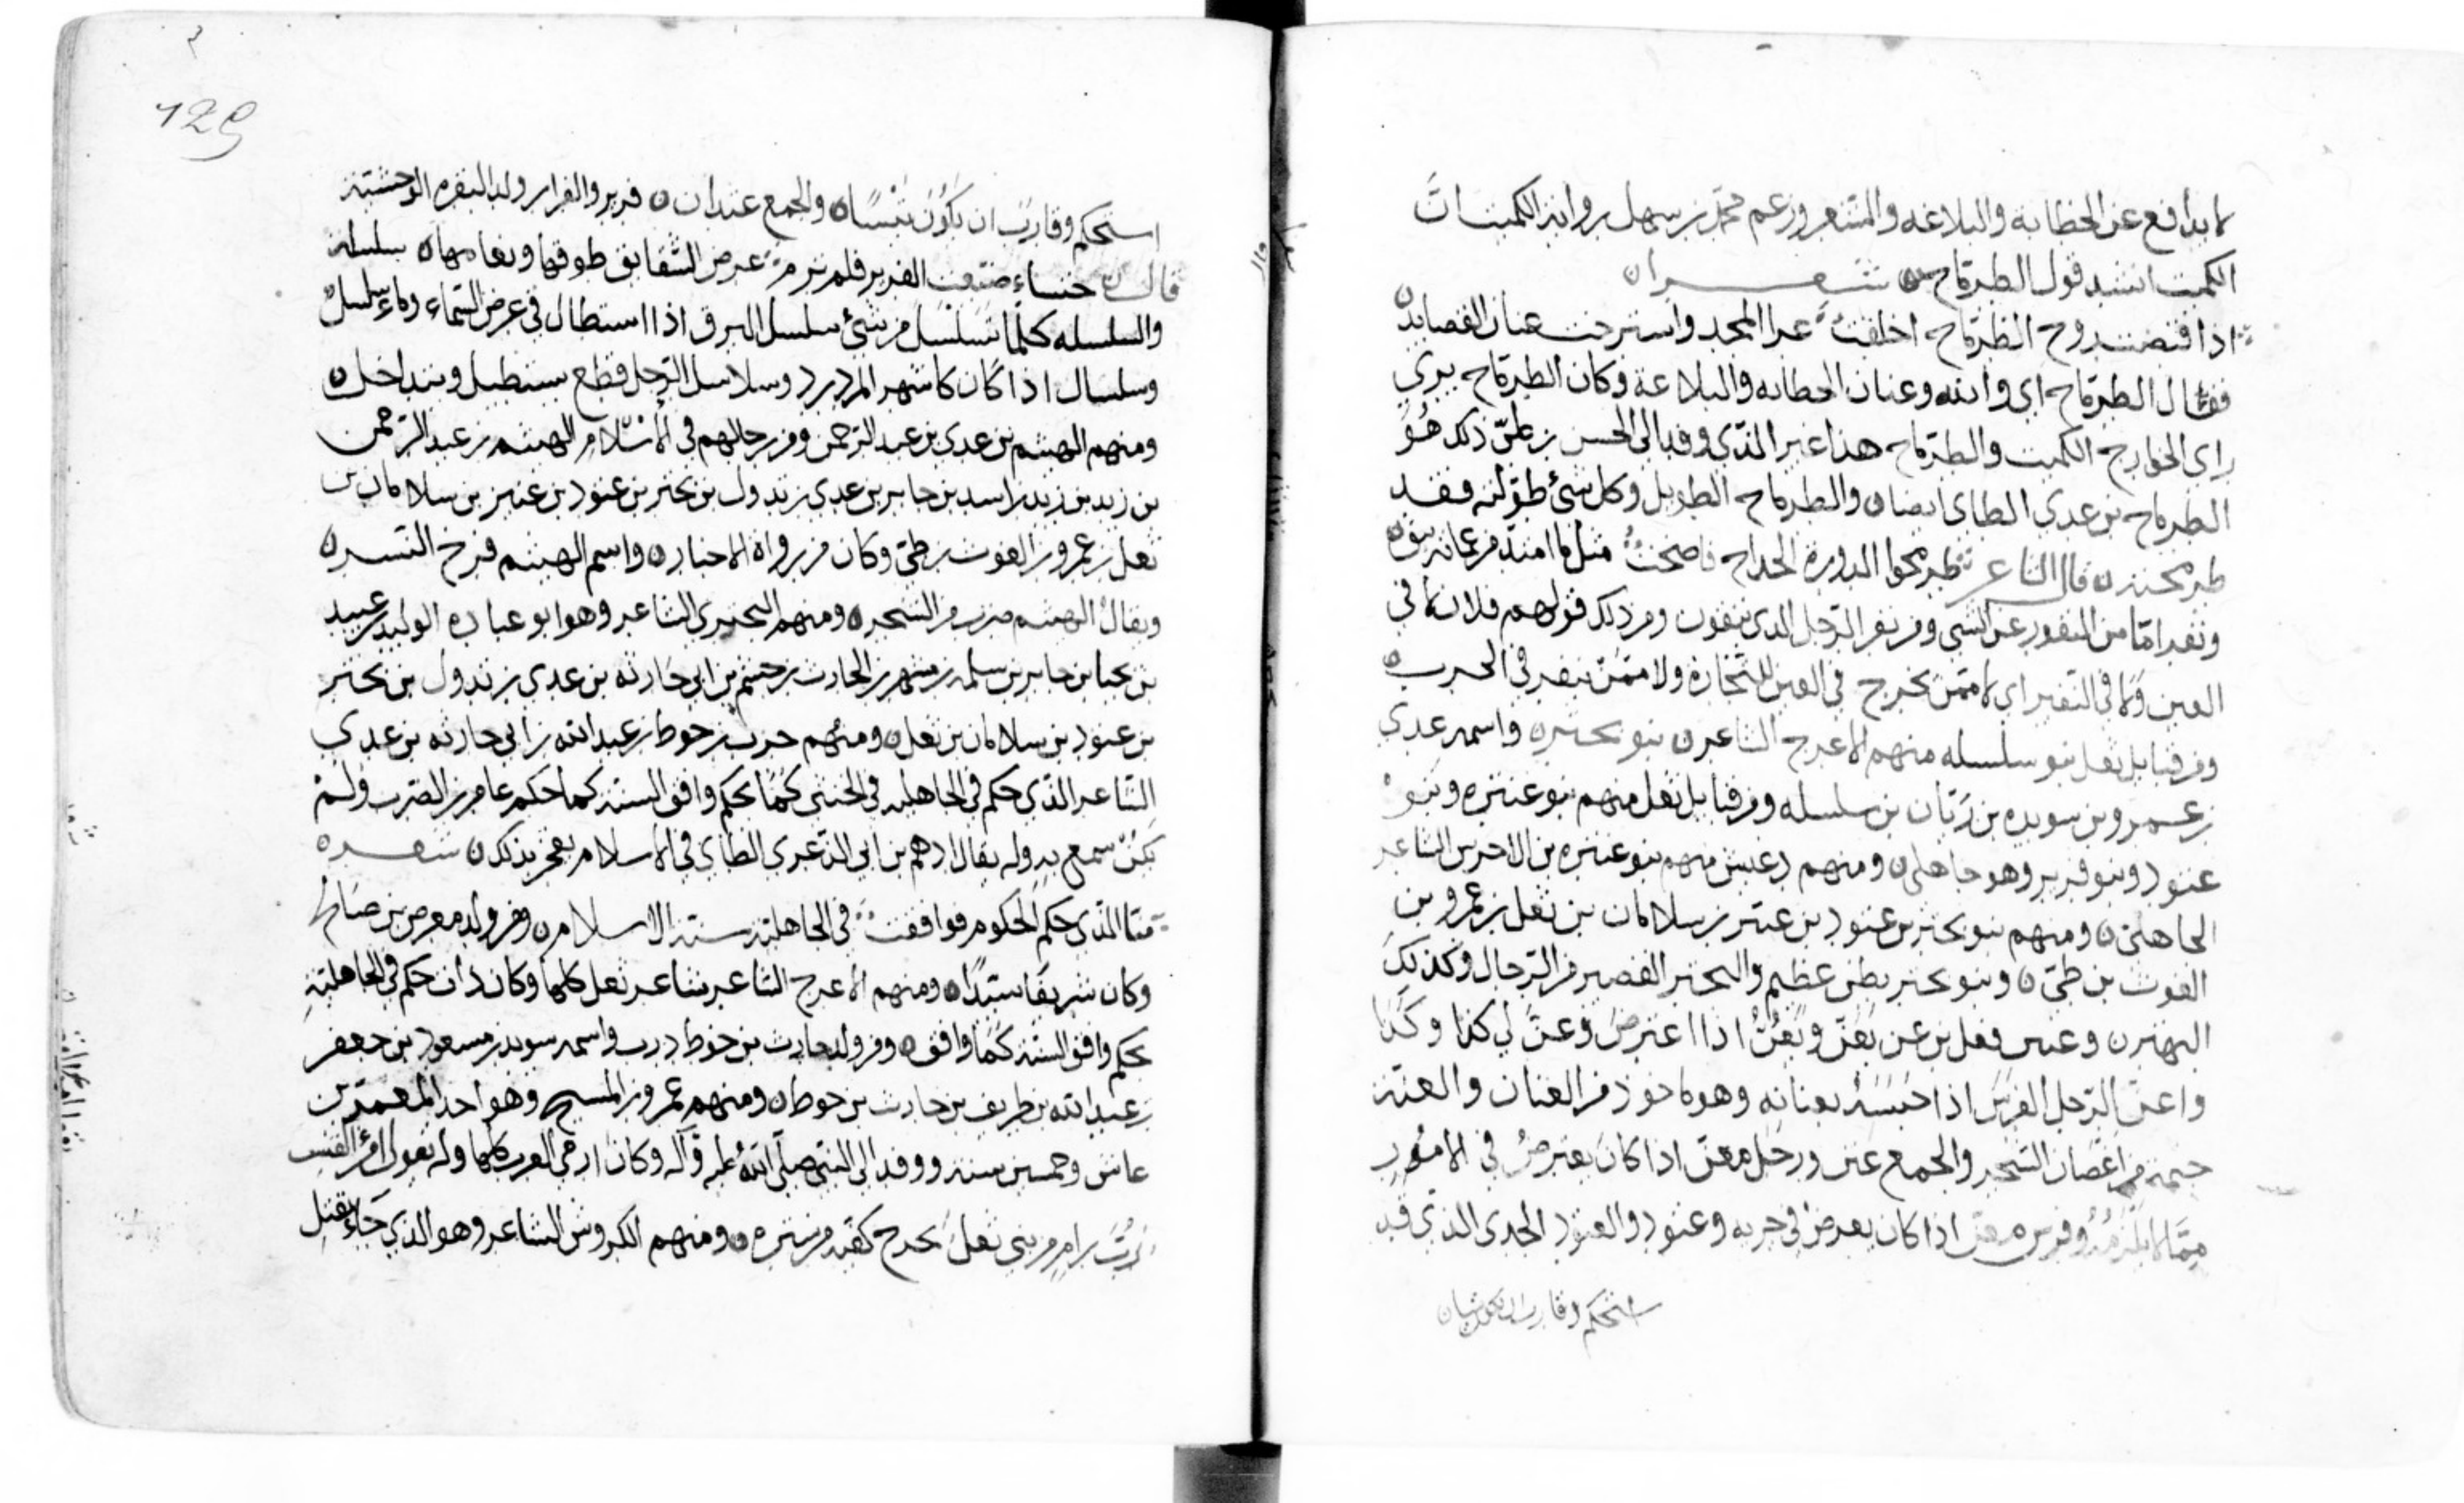 لا يدافع عن الخطابة والبلاغه والشعر وزعم محمد بن سهل راوية الكميت ان
الكميت انشد قول الطرماح شعرا
اذا قبضت روح الطرماح اخلقت عرا المجد واسترخت عنان القصايد
فقال الطرماح اي والله وعنان الخطابه والبلاغة وكان الطرماح يري
راى الخوارج الكميت والطرماح هذا غير الذي وفد الى الحسن بن علي ذلك هو
الطرماح بن عدي الطاى ايضا والطرماح الطويل وكل شئ طولته فقد
طرمحته قال الشاعر طرمحوا الدورة الخداج فاضحت مثل ما امتد من عماية نيق
ونفر امّا من النفور عن الشي ومن نفر الرجل الذي ينفرون ومن ذلك قولهم فلان لا في
العير ولا في النفير اي لا ممن يخرج في العير للتجارة ولا ممن ينفر في الحرب
ومن قبايل ثعل بنو سلسله منهم الاعرج الشاعر بنو بحتر واسمه عدي
بن عمرو بن سويد بن زبّان بن سلسله ومن قبايل ثعل منهم بنو عنتره وبنو
عنود وبنو فرير وهو جاهلي ومنهم دعبش منهم بنو عنتره بن الاخرس الشاعر
الجاهلي ومنهم بنو بحتر بن عتود بن عنيز بن سلامان بن ثعل بن عمرو بن
الغوث بن طيّ وبنو بحتر بطن عظيم والبحتر القصير من الرجال وكذلك
البهتر وعنين فعيل من عن يعنّ ويعُنّ اذا اعترض وعنّ لي كذا وكذا
واعنّ الرجل الفرس اذا حبسه بعنانه وهو ماخوذ من العنان والعنة
خيمة من اغصان الشجر والجمع عنن ورجل معنّ اذا كان يعترض في الامور
ممّا لا يلزمه وفرس معن اذا كان يعرض في جريه وعتود والعتود الجدي الذي قد
استحكم وقارب ان يكون تيسا
129
استحكم وقارب ان يكون تيسًا والجمع عتدان فرير والفرار ولد البقره الوحشية
قال خنساء ضيعت الفرير فلم يرم عرض الشقايق طوفها وبغامها سلسلة
والسلسله كلّما تسلسل من شئ سلسل البرق اذا استطال في عرض السماء وماء سلسل
وسلسال اذا كان كاشهر المزدرد وسلاسل الرمل قطع يستطيل ويتداخل
ومنهم الهيثم بن عدي بن عبد الرحمن ومن رجالهم في الاسلام الهيثم بن عبد الرحمن
بن زيد بن زيد راسيد بن جابر بن عدي بن تدول بن بحتر بن عتود بن عنيز بن سلامان بن
ثعل بن عمرو بن الغوث بن طيّ وكان من رواة الاخبار واسم الهيثم فرخ النسر
ويقال الهيثم ضرب من الشجر ومنهم البحتري الشاعر وهو ابو عبادة الوليد بن عبيد
بن يحيا بن جابر بن سلمه بن مسهر بن الحارث بن خيثم بن ابي حارثه بن عدي بن تدول بن بحتر
بن عتود بن سلامان بن ثعل ومنهم حرب بن حوط بن عبد الله بن ابي حارثه بن عدي
الشاعر الذي حكم في الجاهليه في الخنثى كما يحكم وافق السنة كما حكم عامر بن الظرب ولم
يكن سمع به وله يقال ادهم بن ابي الذعري الطاى في الاسلام يفخر بذلك شعره
منّا الذي حكم الحكوم فوافقت في الجاهلية سنة الاسلام ومن ولده معرض بن صالح
وكان شريفا سيدا ومنهم الاعرج الشاعر شاعر ثعل كلها وكان ذان حكم في الجاهلية
بحكم وافق السنة كما وافق ومن ولد حارث بن حوط درب واسمه سويد بن مسعود بن جعفر
بن عبد الله بن طريف بن حارث بن حوط ومنهم عمرو بن المسبح وهو احد المعمرين
عاش وخمسين سنة ووفد الى النبي صلى الله عليه وآله وكان ارمي العرب كلها وله يقول امرؤ القيس
رُبّ رام من بني ثعل مخرج كفيه من ستره ومنهم الكروس الشاعر وهو الذي جاء بقتل